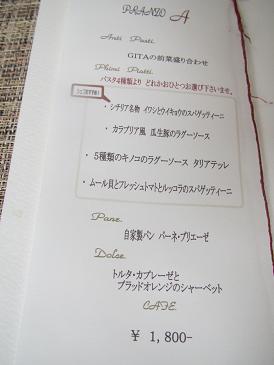 PRANZO A
Anti Pasti
GITAの前菜盛り合わせ
Primi Piatti
パスタ4種類より どれかおひとつお選び下さいませ。
・シチリア名物 イワシとウイキョウのスパゲッティーニ
・カラブリア風 瓜生豚のラグーソース
・5種類のキノコのラグーソース タリアテッレ
・ムール貝とフレッシュトマトとルッコラのスパゲッティーニ
Pane
自家製パン パーネ・プリエーゼ
Dolce
トルタ・カプレーゼと
ブラッドオレンジのシャーベット
CAFE
¥ 1,800-